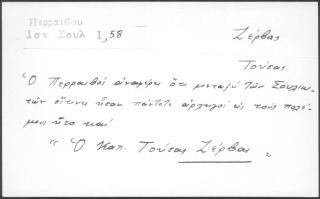 Περραιβου
Ιστ Σουλ Ι,58
Ζέρβας
Τούσας
Ὁ Περραιβός ἀναφέρει ὅτι μεταξύ τῶν Σουλιω-
τῶν οἵτινες ἦσαν πάντοτε ἀρχηγοί εἰς τούς πολέ-
μους ἦτο καί
" Ὁ Καπ. Τούσας Ζέρβας "